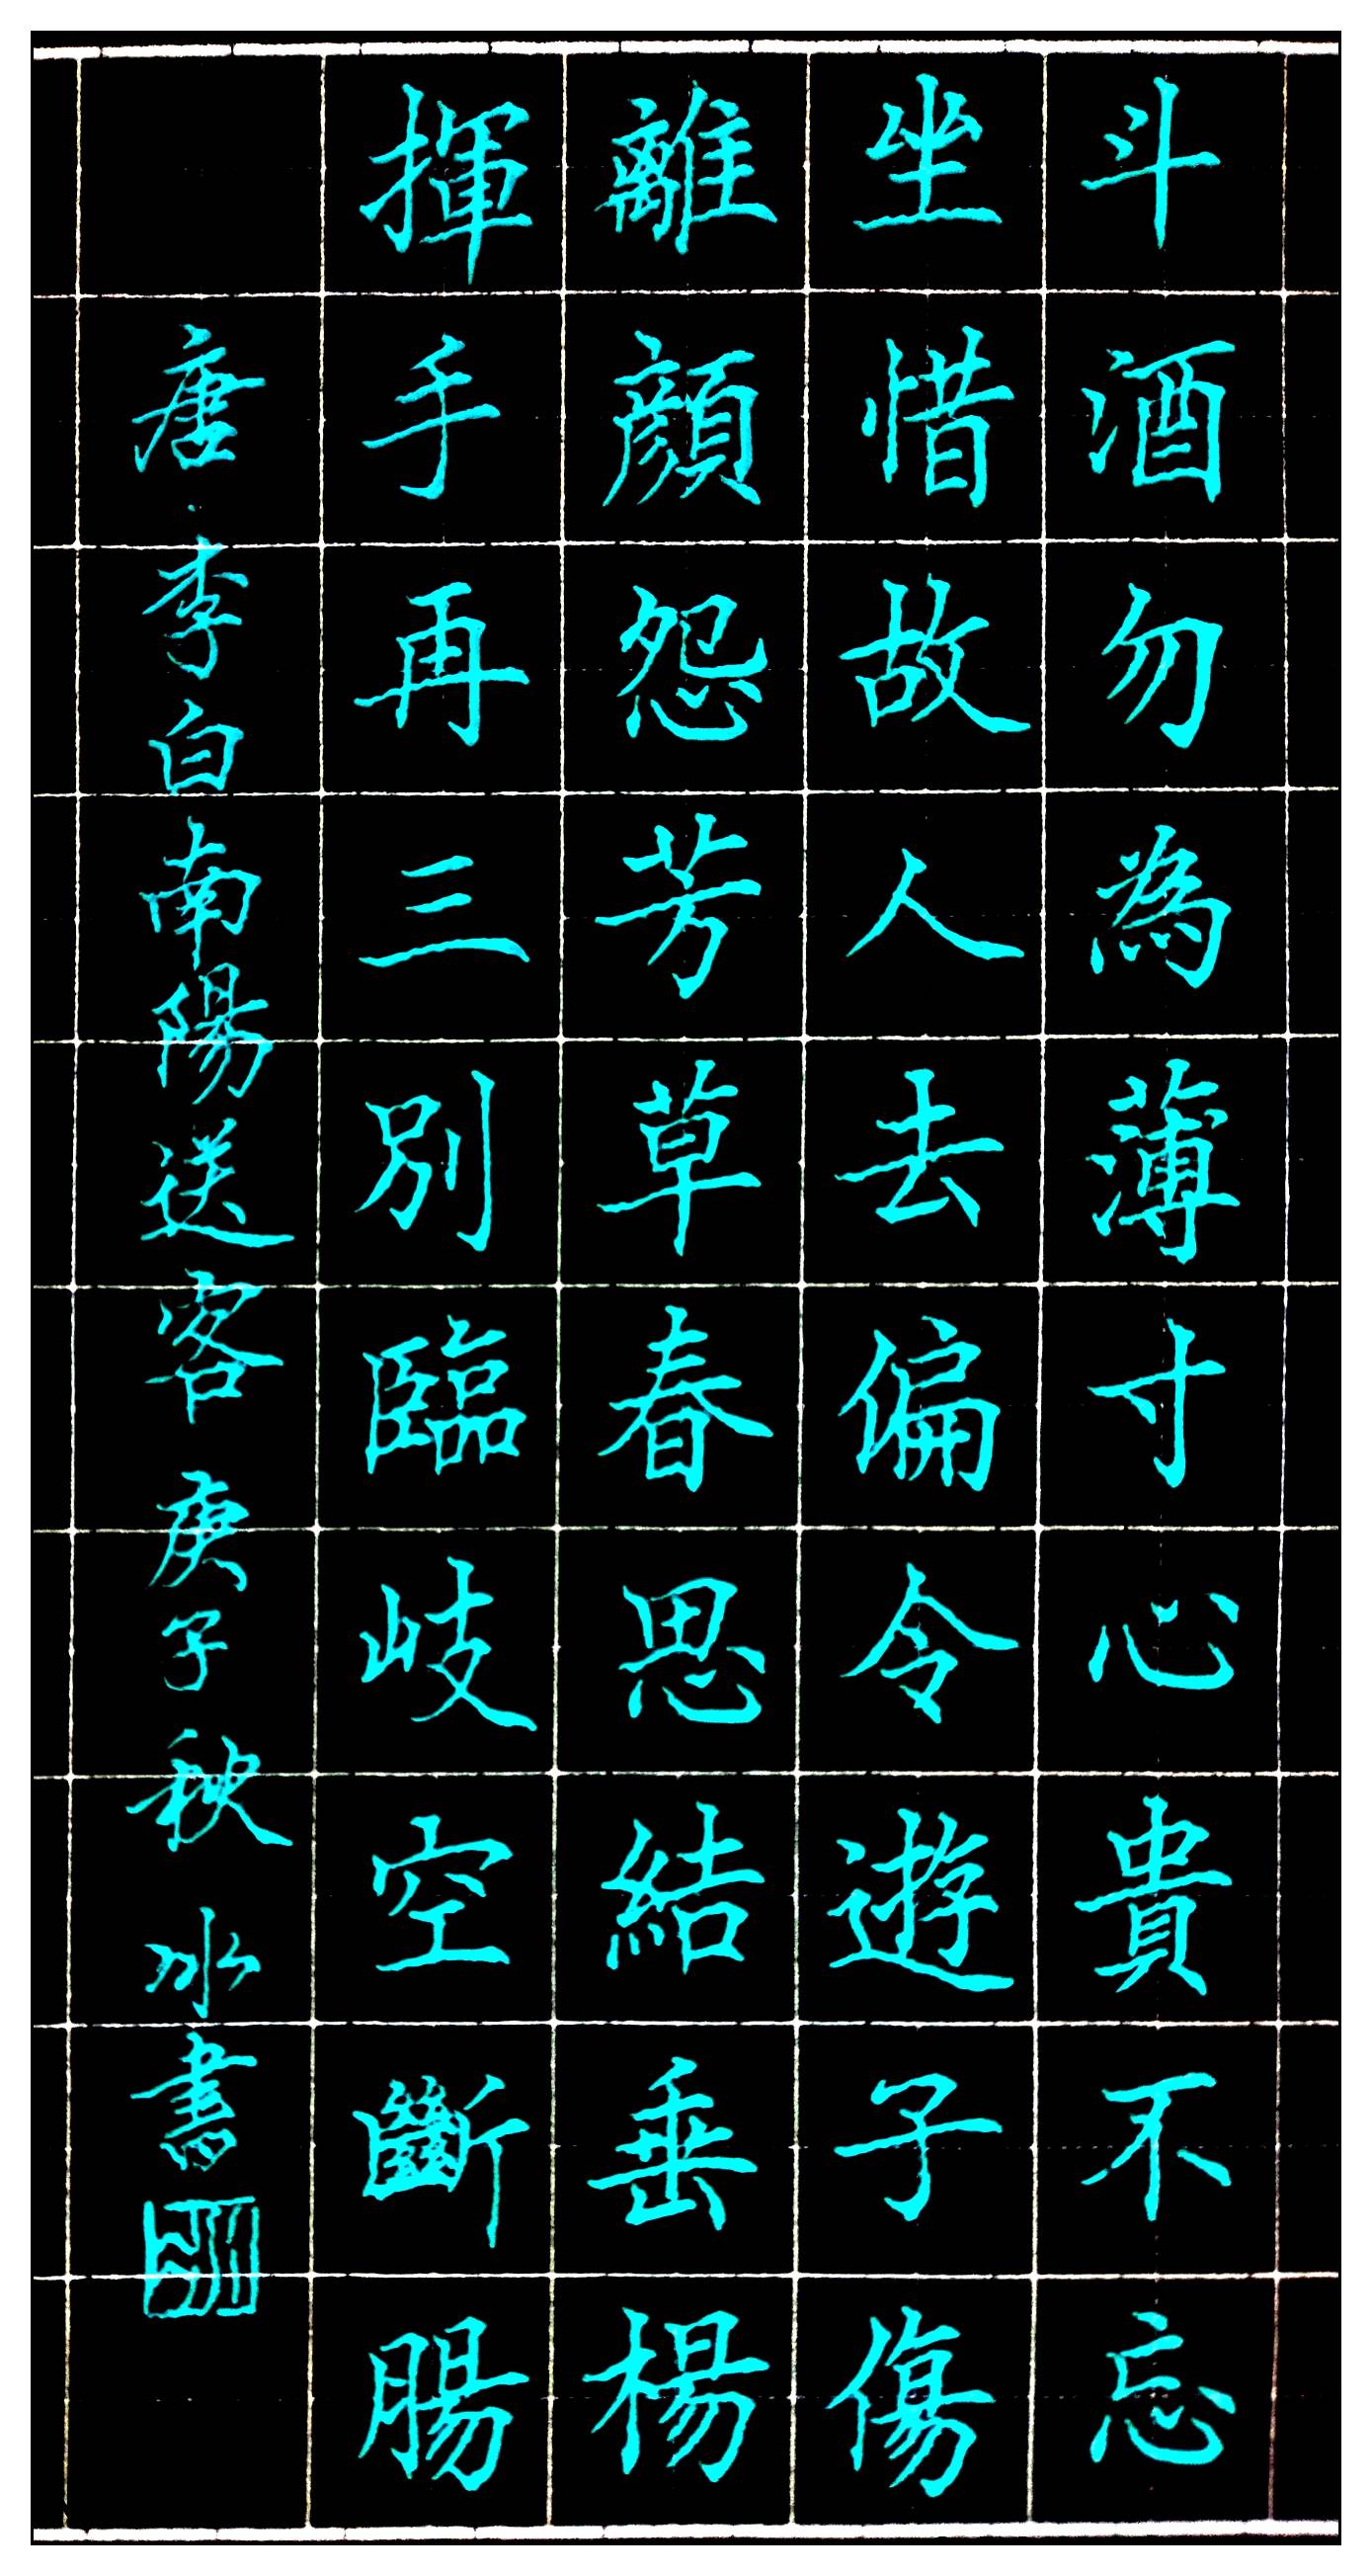 斗酒勿為薄寸心貴不忘
坐惜故人去偏令遊子傷
離顏怨芳草春思結垂楊
揮手再三別臨岐空斷腸
唐·李白南陽送客 庚子秋 水書